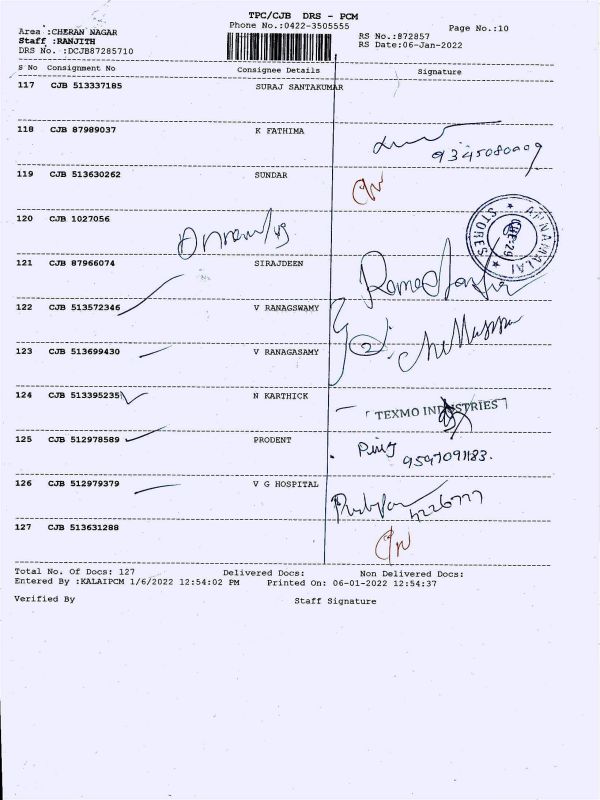 TPC/CJB DRS - PCM
Phone No.:0422-3505555
Page No.:10
Area :CHERAN NAGAR
Staff :RANJITH
DRS No. :DCJB87285710
RS No.:872857
RS Date:06-Jan-2022
S No Consignment No Consignee Details Signature
117 CJB 513337185 SURAJ SANTAKUMAR
118 CJB 87989037 K FATHIMA
119 CJB 513630262 SUNDAR
120 CJB 1027056
ANNAMALAI STORES
121 CJB 87966074 SIRAJDEEN
122 CJB 513572346 V RANAGSWAMY
2
123 CJB 513699430 V RANAGASAMY
124 CJB 513395235 N KARTHICK
TEXMO INDUSTRIES
125 CJB 512978589 PRODENT
9597091183.
126 CJB 512979379 V G HOSPITAL
127 CJB 513631288
Total No. Of Docs: 127 Delivered Docs: Non Delivered Docs:
Entered By :KALAIPCM 1/6/2022 12:54:02 PM Printed On: 06-01-2022 12:54:37
Verified By Staff Signature